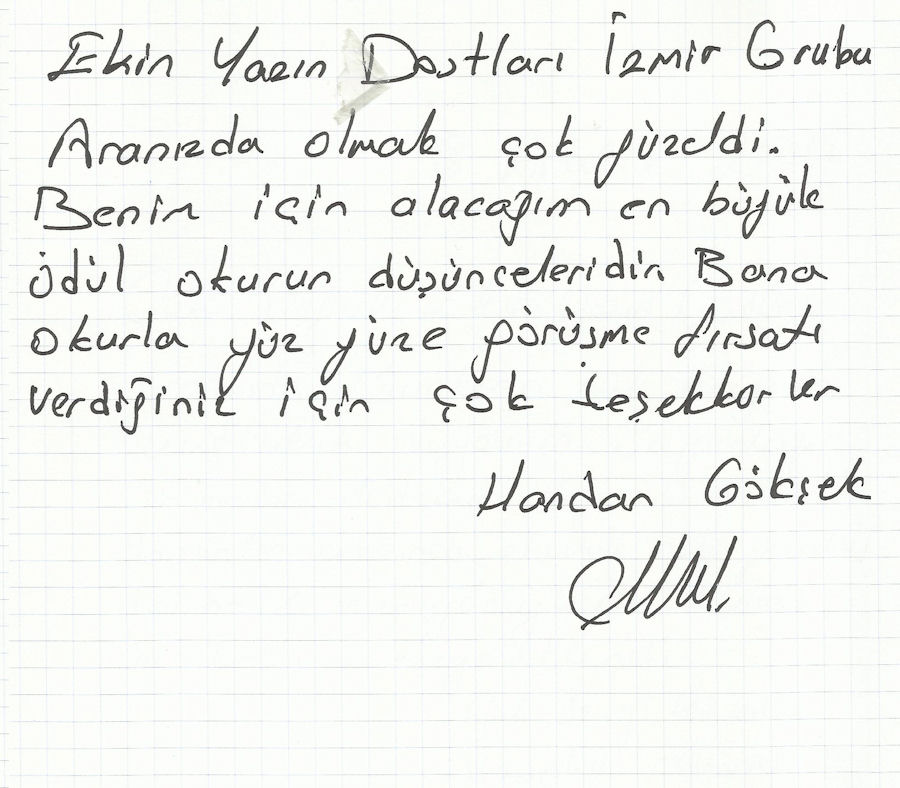 Ekin Yazın Dostları İzmir Grubu
Aranızda olmak çok güzeldi.
Benim için alacağım en büyük
ödül okurun düşünceleridir. Bana
okurla yüz yüze görüşme fırsatı
verdiğiniz için çok teşekkürler
Handan Gökçek